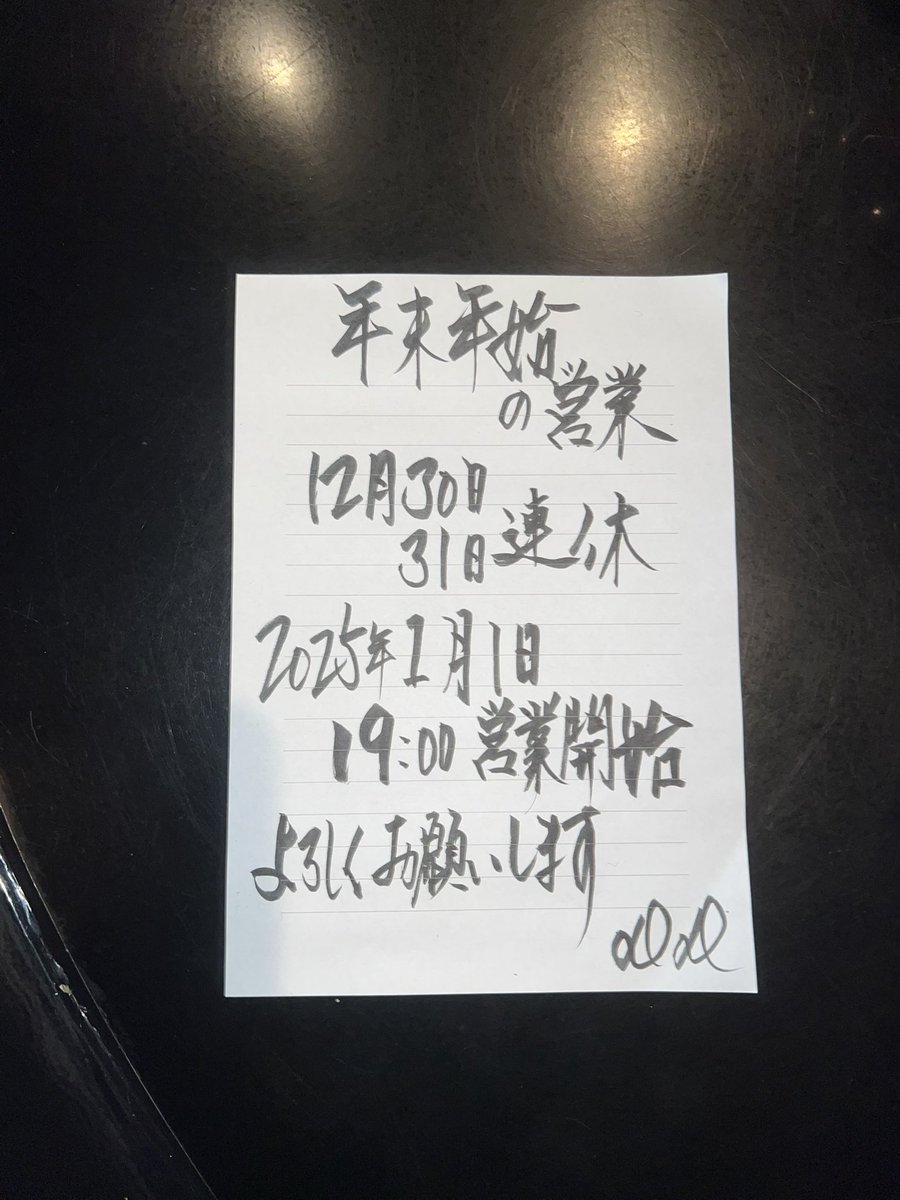 年末年始
の営業
12月30日
31日連休
2025年1月1日
19:00 営業開始
よろしくお願いします